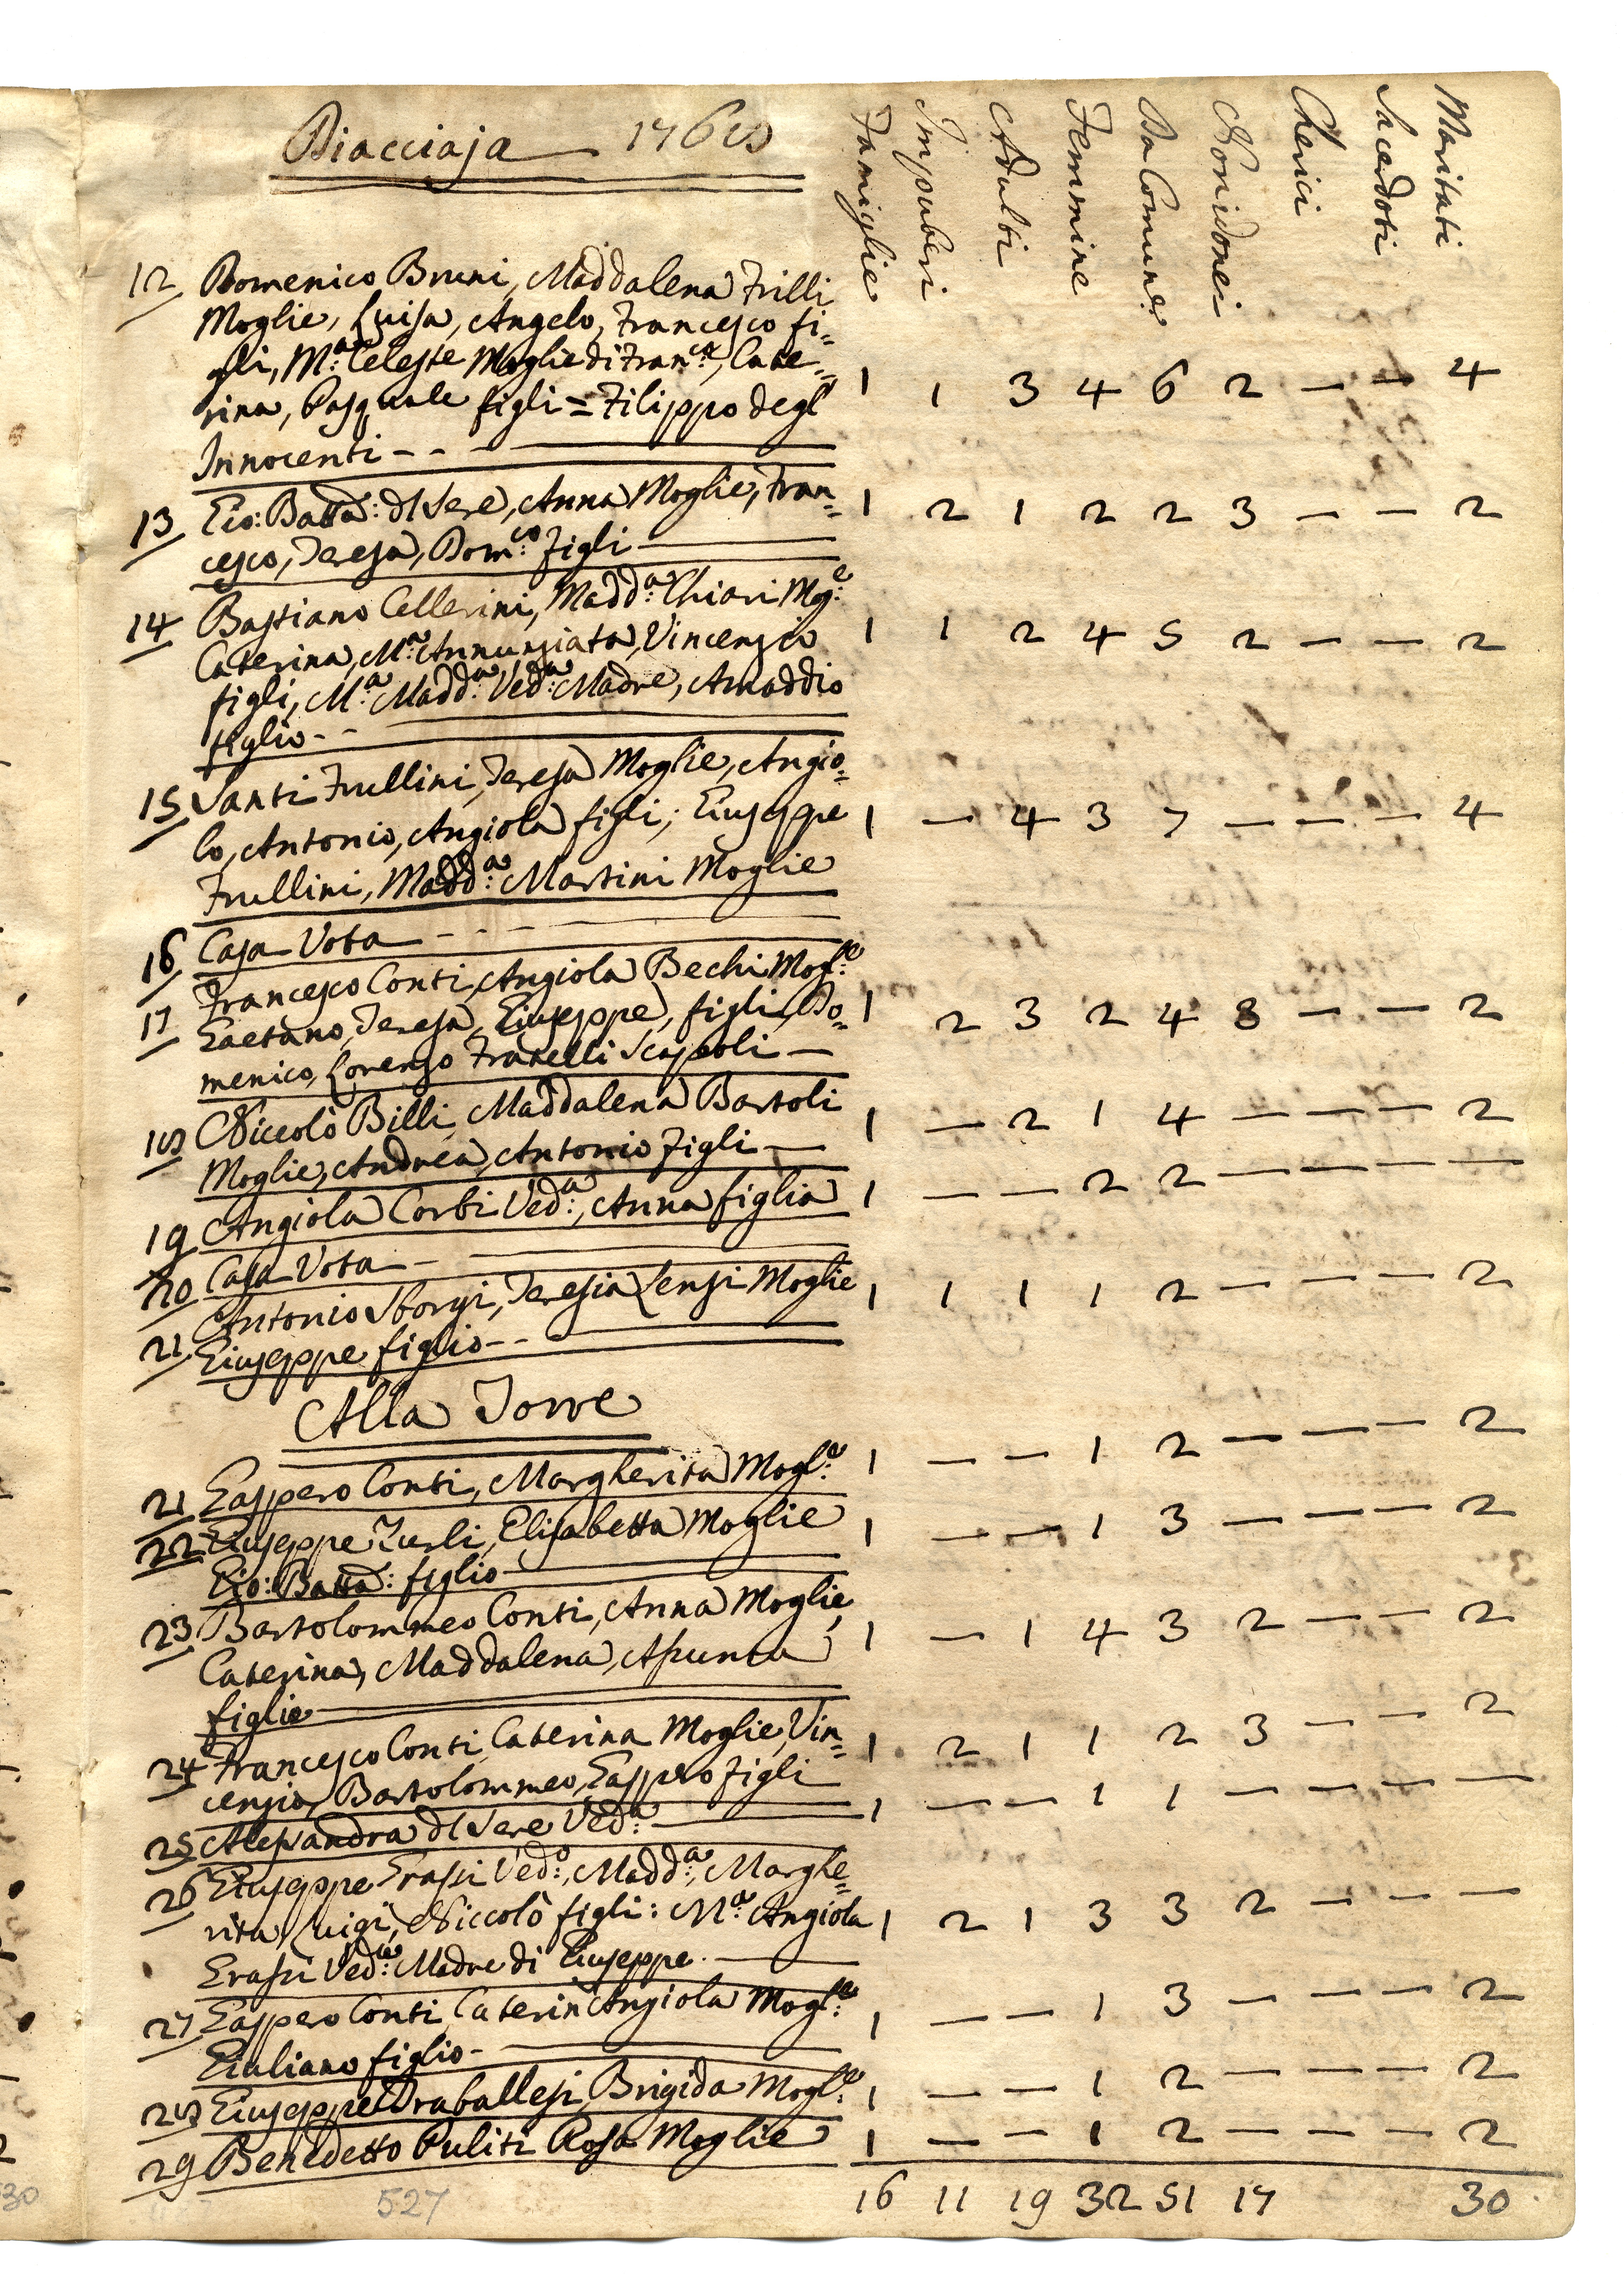 Diacciaja 1768
Famiglie Impuberi Adulti Femmine Da Comune Non idonei Cherici Sacerdoti Maritati
12 Domenico Bruni, Maddalena Frilli
Moglie, Luisa, Angelo, Francesco fi=
gli, M:a Celeste Moglie di Fran:co, Cate=
rina, Pasquale figli = Filippo degl' 1 1 3 4 6 2 — — 4
Innocenti - - -
13 Gio: Batta: del Sere, Anna Moglie, Fran= 1 2 1 2 2 3 — — 2
cesco, Teresa, Dom:co figli
14 Bastiano Cellerini, Madd:a Chiari Mog:e
Caterina, M:a Annunziata, Vincenzio 1 1 2 4 5 2 — — 2
figli, M:a Madd:a Ved:a Madre, Amaddio
figlio - -
15 Santi Frullini, Teresa Moglie, Angio=
lo, Antonio, Angiola figli; Giuseppe 1 — 4 3 7 — — — 4
Frullini, Madd:a Martini Moglie
16 Casa Vota - - -
17 Francesco Conti, Angiola Bechi Mogl:e
Gaetano, Teresa, Giuseppe, figli, Do= 1 2 3 2 4 3 — — 2
menico, Lorenzo Fratelli Scapoli —
18 Niccolò Billi, Maddalena Bartoli 1 — 2 1 4 — — — 2
Moglie, Andrea, Antonio figli —
19 Angiola Corbi Ved:a, Anna figlia 1 — — 2 2 — — — —
20 Casa Vota -
21 Antonio Sborgi, Teresia Lensi Moglie 1 1 1 1 2 — — — 2
Giuseppe figlio - -
Alla Torre
21 Gasppero Conti, Margherita Mogl:e 1 — — 1 2 — — — 2
22 Giuseppe Zurli, Elisabetta Moglie 1 — — 1 3 — — — 2
Gio: Batta: figlio
23 Bartolommeo Conti, Anna Moglie,
Caterina, Maddalena, Assunta 1 — 1 4 3 2 — — 2
figlie
24 Francesco Conti, Caterina Moglie, Vin= 1 2 1 1 2 3 — — 2
cenzio, Bartolommeo, Gasppero figli
25 Alessandra del Sere Ved:a 1 — — 1 1 — — — —
26 Giuseppe Grassi Ved:o, Madd:a, Marghe=
rita, Luigi, Niccolò figli: M:a Angiola 1 2 1 3 3 2 — — —
Grassi Ved:a Madre di Giuseppe.
27 Gasppero Conti, Caterin'Angiola Mogl:e 1 — — 1 3 — — — 2
Giuliano figlio -
28 Giuseppe Draballesi, Brigida Mogl:e 1 — — 1 2 — — — 2
29 Benedetto Puliti Rosa Moglie 1 — — 1 2 — — — 2
16 11 19 32 51 17 30
527
30